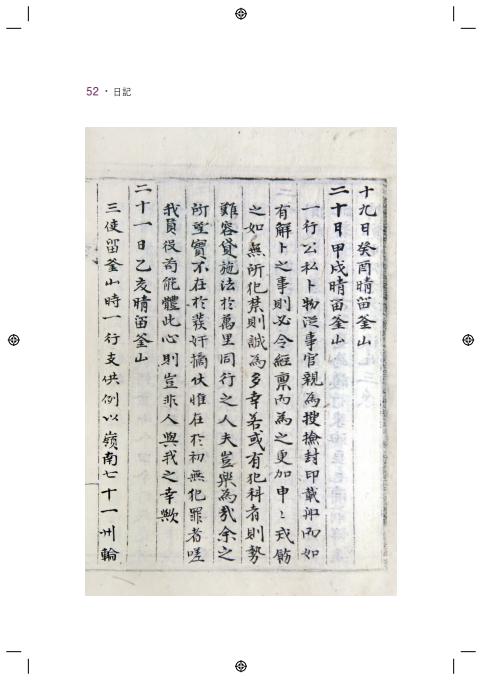 52 · 日記
十九日癸酉晴留釜山
二十日甲戌晴留釜山
一行公私卜物從事官親為搜撿封印載舡而如
有解卜之事則必令經稟而為之更加申〻戒飭
之如無所犯禁則誠為多幸若或有犯科者則勢
難容貸施法於萬里同行之人夫豈樂為哉余之
所望實不在於發奸摘伏惟在於初無犯罪者嗟
我員役苟能體此心則豈非人與我之幸歟
二十一日乙亥晴留釜山
三使留釜山時一行支供例以嶺南七十一州輪